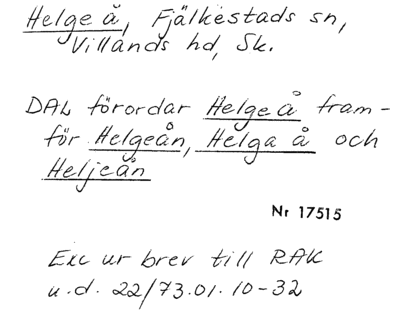 Helge å, Fjälkestads sn,
Villands hd, Sk.
DAL förordar Helge å fram-
för Helgeån, Helga å och
Heljeån
Nr 17515
Exc ur brev till RAK
u.d. 22/73.01.10-32